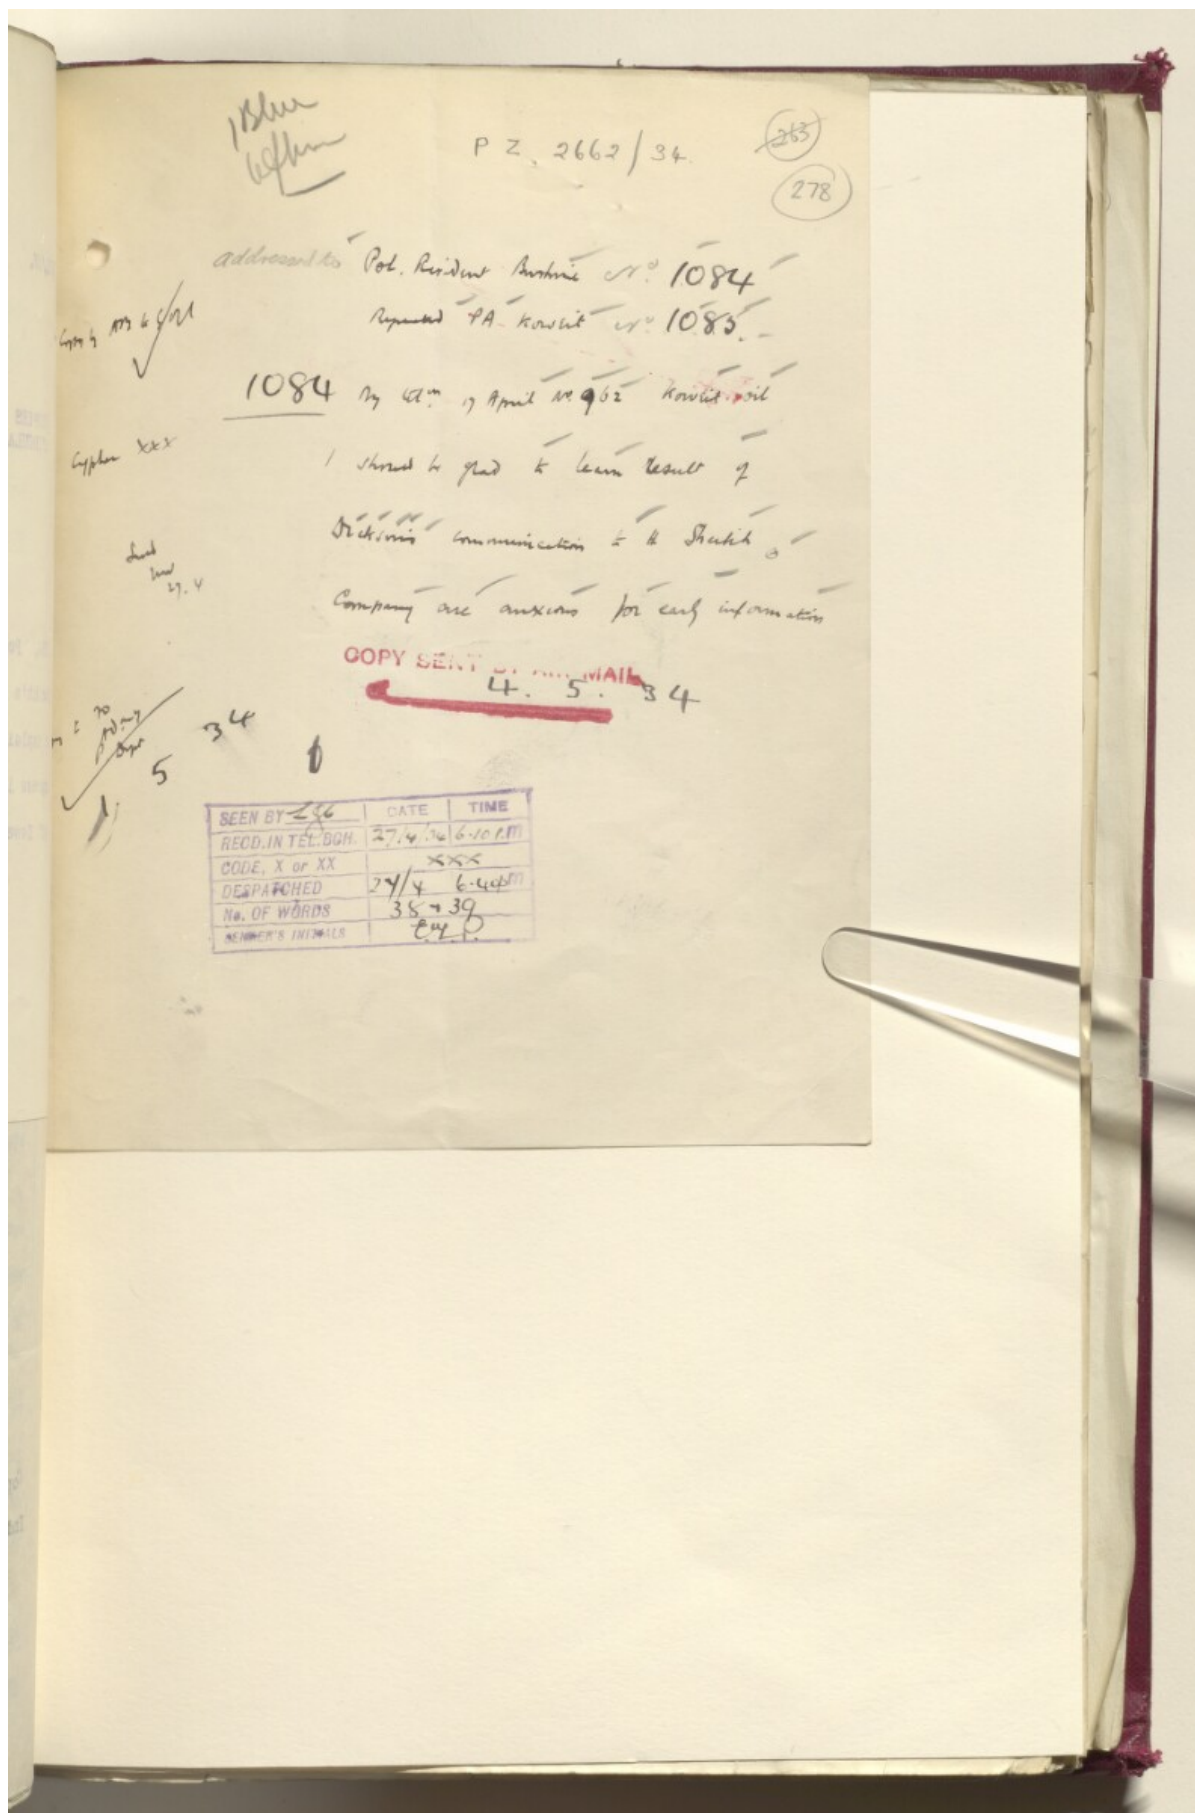 1 Blue
P Z. 2662/34.
263
278
addressed to Pol. Resident Bushire No. 1084
Repeated PA Koweit No. 1085.
1084 My telm 17 April No. 962 Koweit oil
Cypher XXX
I should be glad to learn result of
Dickson's communication to H Sheikh.
Sent
27.4
Company are anxious for early information
COPY SENT BY AIR MAIL
4. 5. 34
5 34
SEEN BY DATE TIME
RECD. IN TEL. BCH. 27/4/34 6-10 P.M
CODE, X or XX XXX
DESPATCHED 27/4 6-40pm
No. OF WORDS 38 + 39
SENDER'S INITIALS